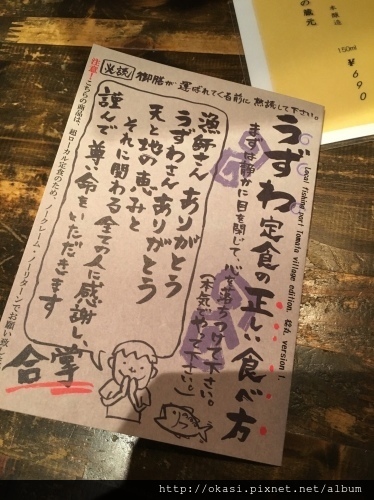 必読 御膳が運ばれてくる前に熟読して下さい。
うずわ定食の正しい食べ方
Local fishing port Tomato village edition. 粋丸. version 1.
まずは静かに目を閉じて、心を落ちつけて下さい。
(本気でやって下さい。)
漁師さんありがとう
うずわさんありがとう
天と地の恵みと
それに関わる全ての人に感謝し、
謹んで尊い命をいただきます
合掌
注意!こちらの商品は、超ローカル定食のため、ノークレーム、ノーリターンでお願い致し
の蔵元
本醸造
150ml
¥690
http://okasi.pixnet.net/album